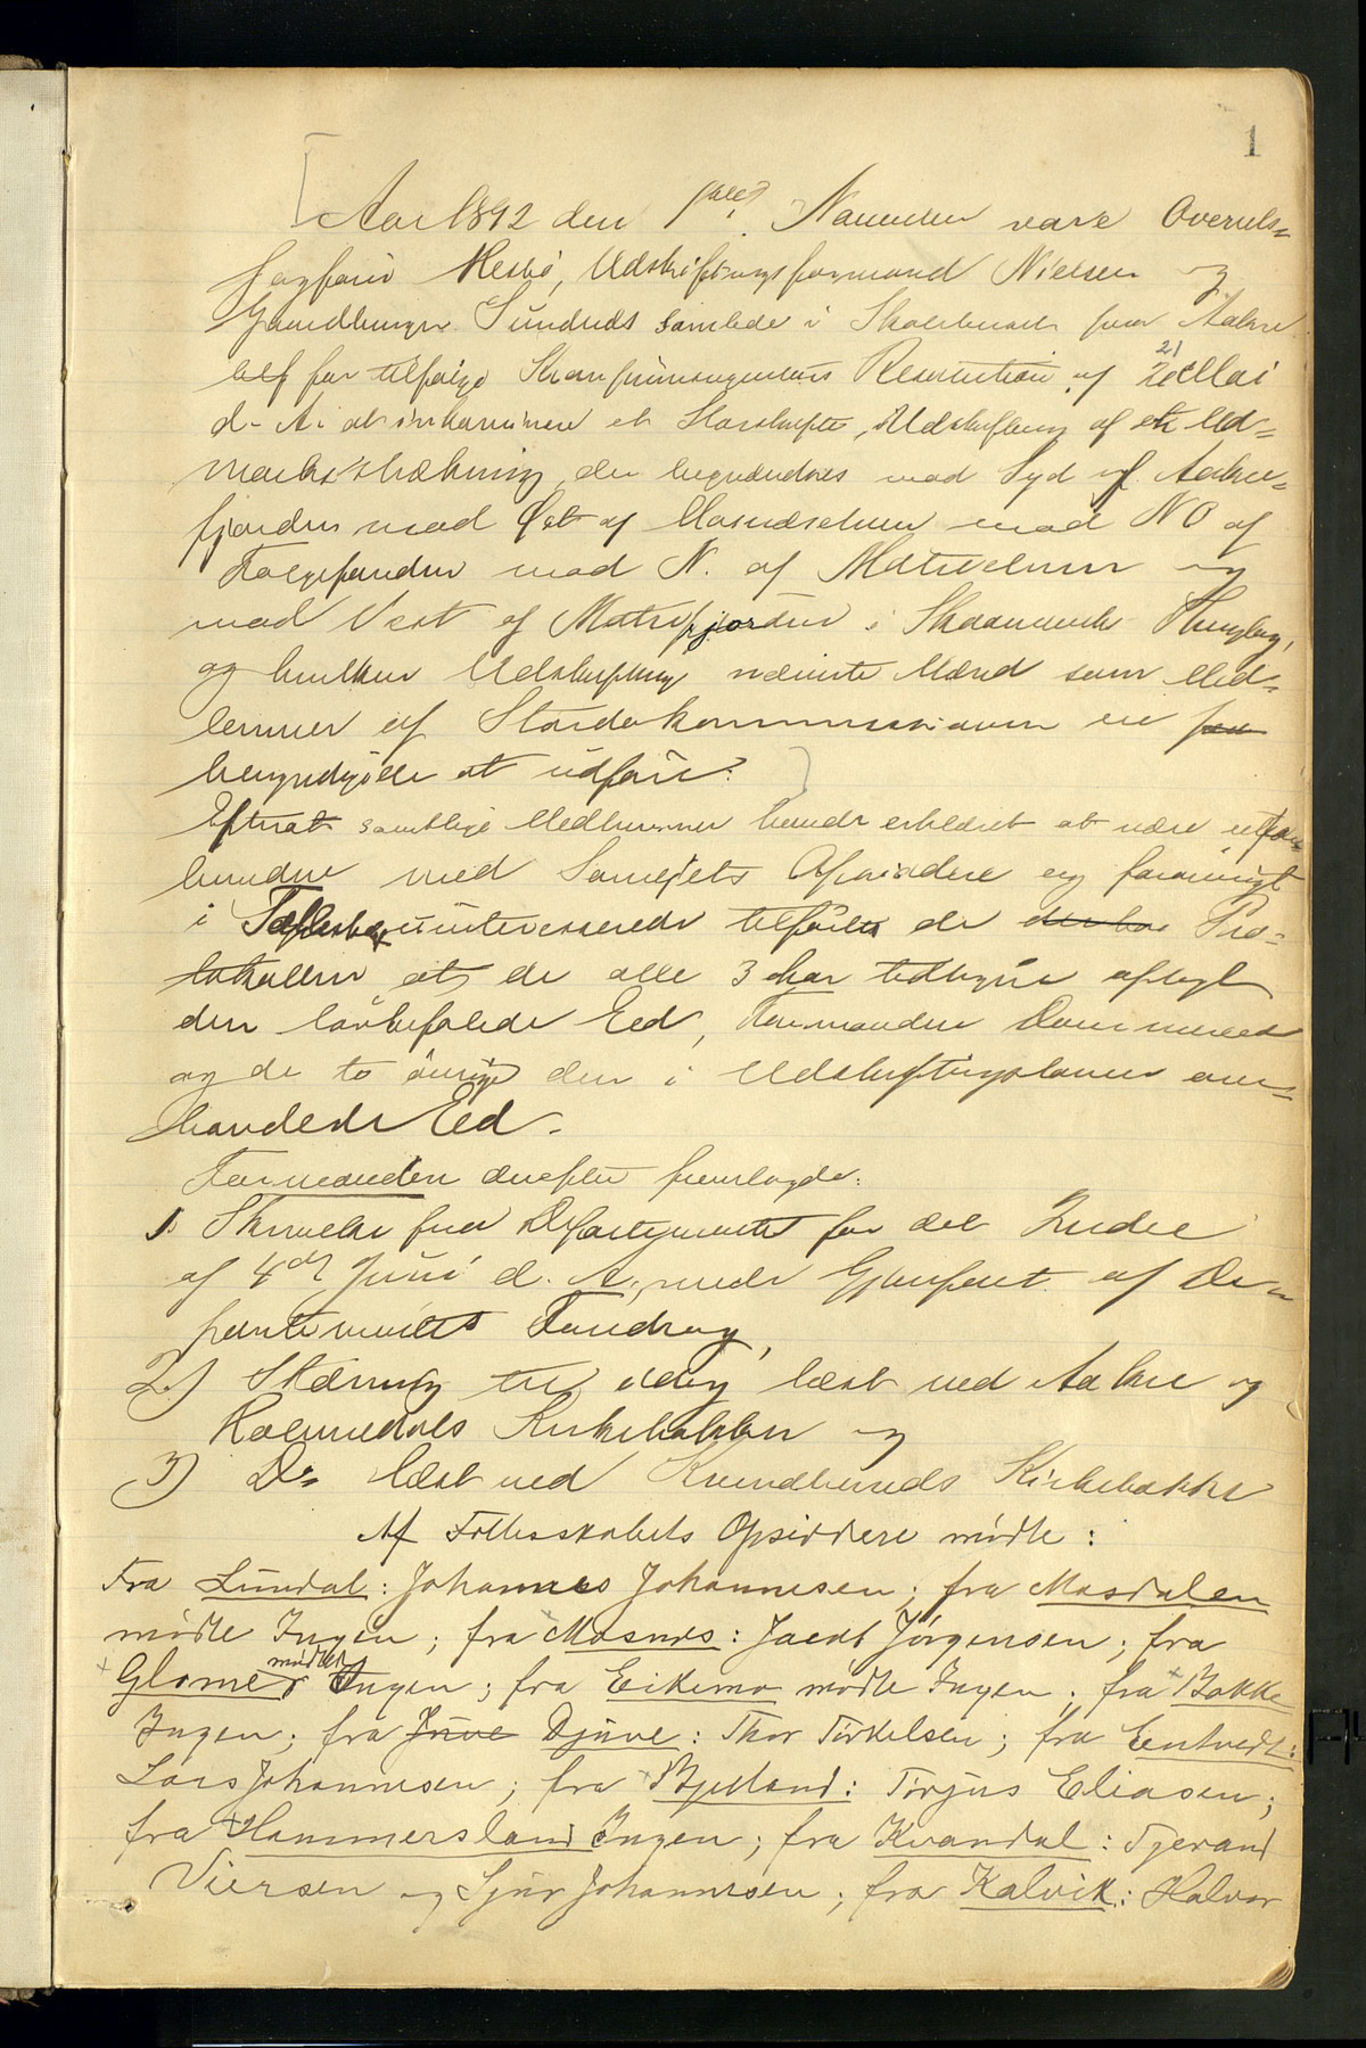 1
Aar 1892 den 1ste November vare Overrets-
sagfører Hesbø, Udskiftningsformand Nielsen og
Gaardbruger Sunduds samlede i Skolehuset paa Aakre
for tilfølge Resolution af 21 Mai
d. A. at inkaminere et Storskifte, Udskiftning af et Ud-
marksstrækning, der begrændses mod Syd af Aakre-
fjorden mod Øst af Mosneselven mod NO af
Folgefonden mod N. af Matreelven og
mod Vest af Matrefjorden i Skaanevik Thinglag,
og hvilken Udskiftning nævnte Mænd som Med-
lemmer af Stordakommissionen er
bemyndigede at udføre.
Efterat samtlige Medlemmer havde erklæret at være ufor-
bundne med Sameiets Opsiddere og forøvrigt
i uinteresserede tilførtes de Pro-
tokollen at de alle 3 har tidligere aflagt
den lovbefalede Eed, Formanden Dommereed
og de to øvrige den i Udskiftningsloven om-
handlede Eed.
Formanden derefter fremlagde:
1. Skrivelse fra Departementet for det Indre
af 4de Juni d. A. med Gjenpart af De-
partementets Foredrag,
2) Stævning til idag læst ved Aakre og
Holmedals Kirkebakker og
3) Do læst ved Kvindherreds Kirkebakke
Af Fællesskabets Opsiddere mødte:
Fra Lundal: Johannes Johannesen; fra Mosdalen
mødte Ingen; fra Mosnes: Jacob Jørgensen; fra
Glomer mødte Ingen; fra Eikemo mødte Ingen; fra Bakke
Ingen; fra Juve Djuve: Thor Torkelsen; fra Eentvedt:
Lars Johannesen; fra Bjelland: Torjus Eliasen;
fra Hammersland Ingen; fra Kvandal: Tjerand
Viersen og Sjur Johannesen; fra Kalvik: Halvor